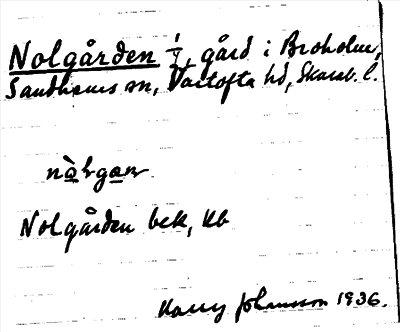 Nolgården 1/4, gård i Broholm,
Sandhems sn, Vartofta hd, Skarab. l.
Nolgården bek, kb
Harry Johansson 1936.